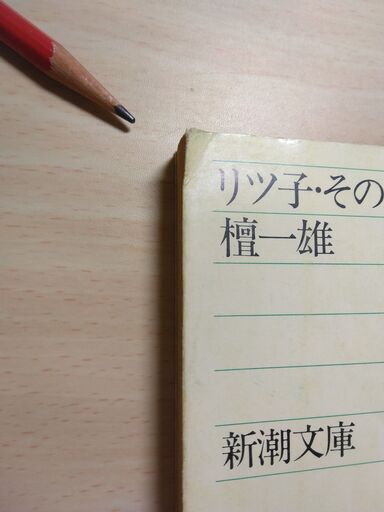 リツ子・その
檀一雄
新潮文庫